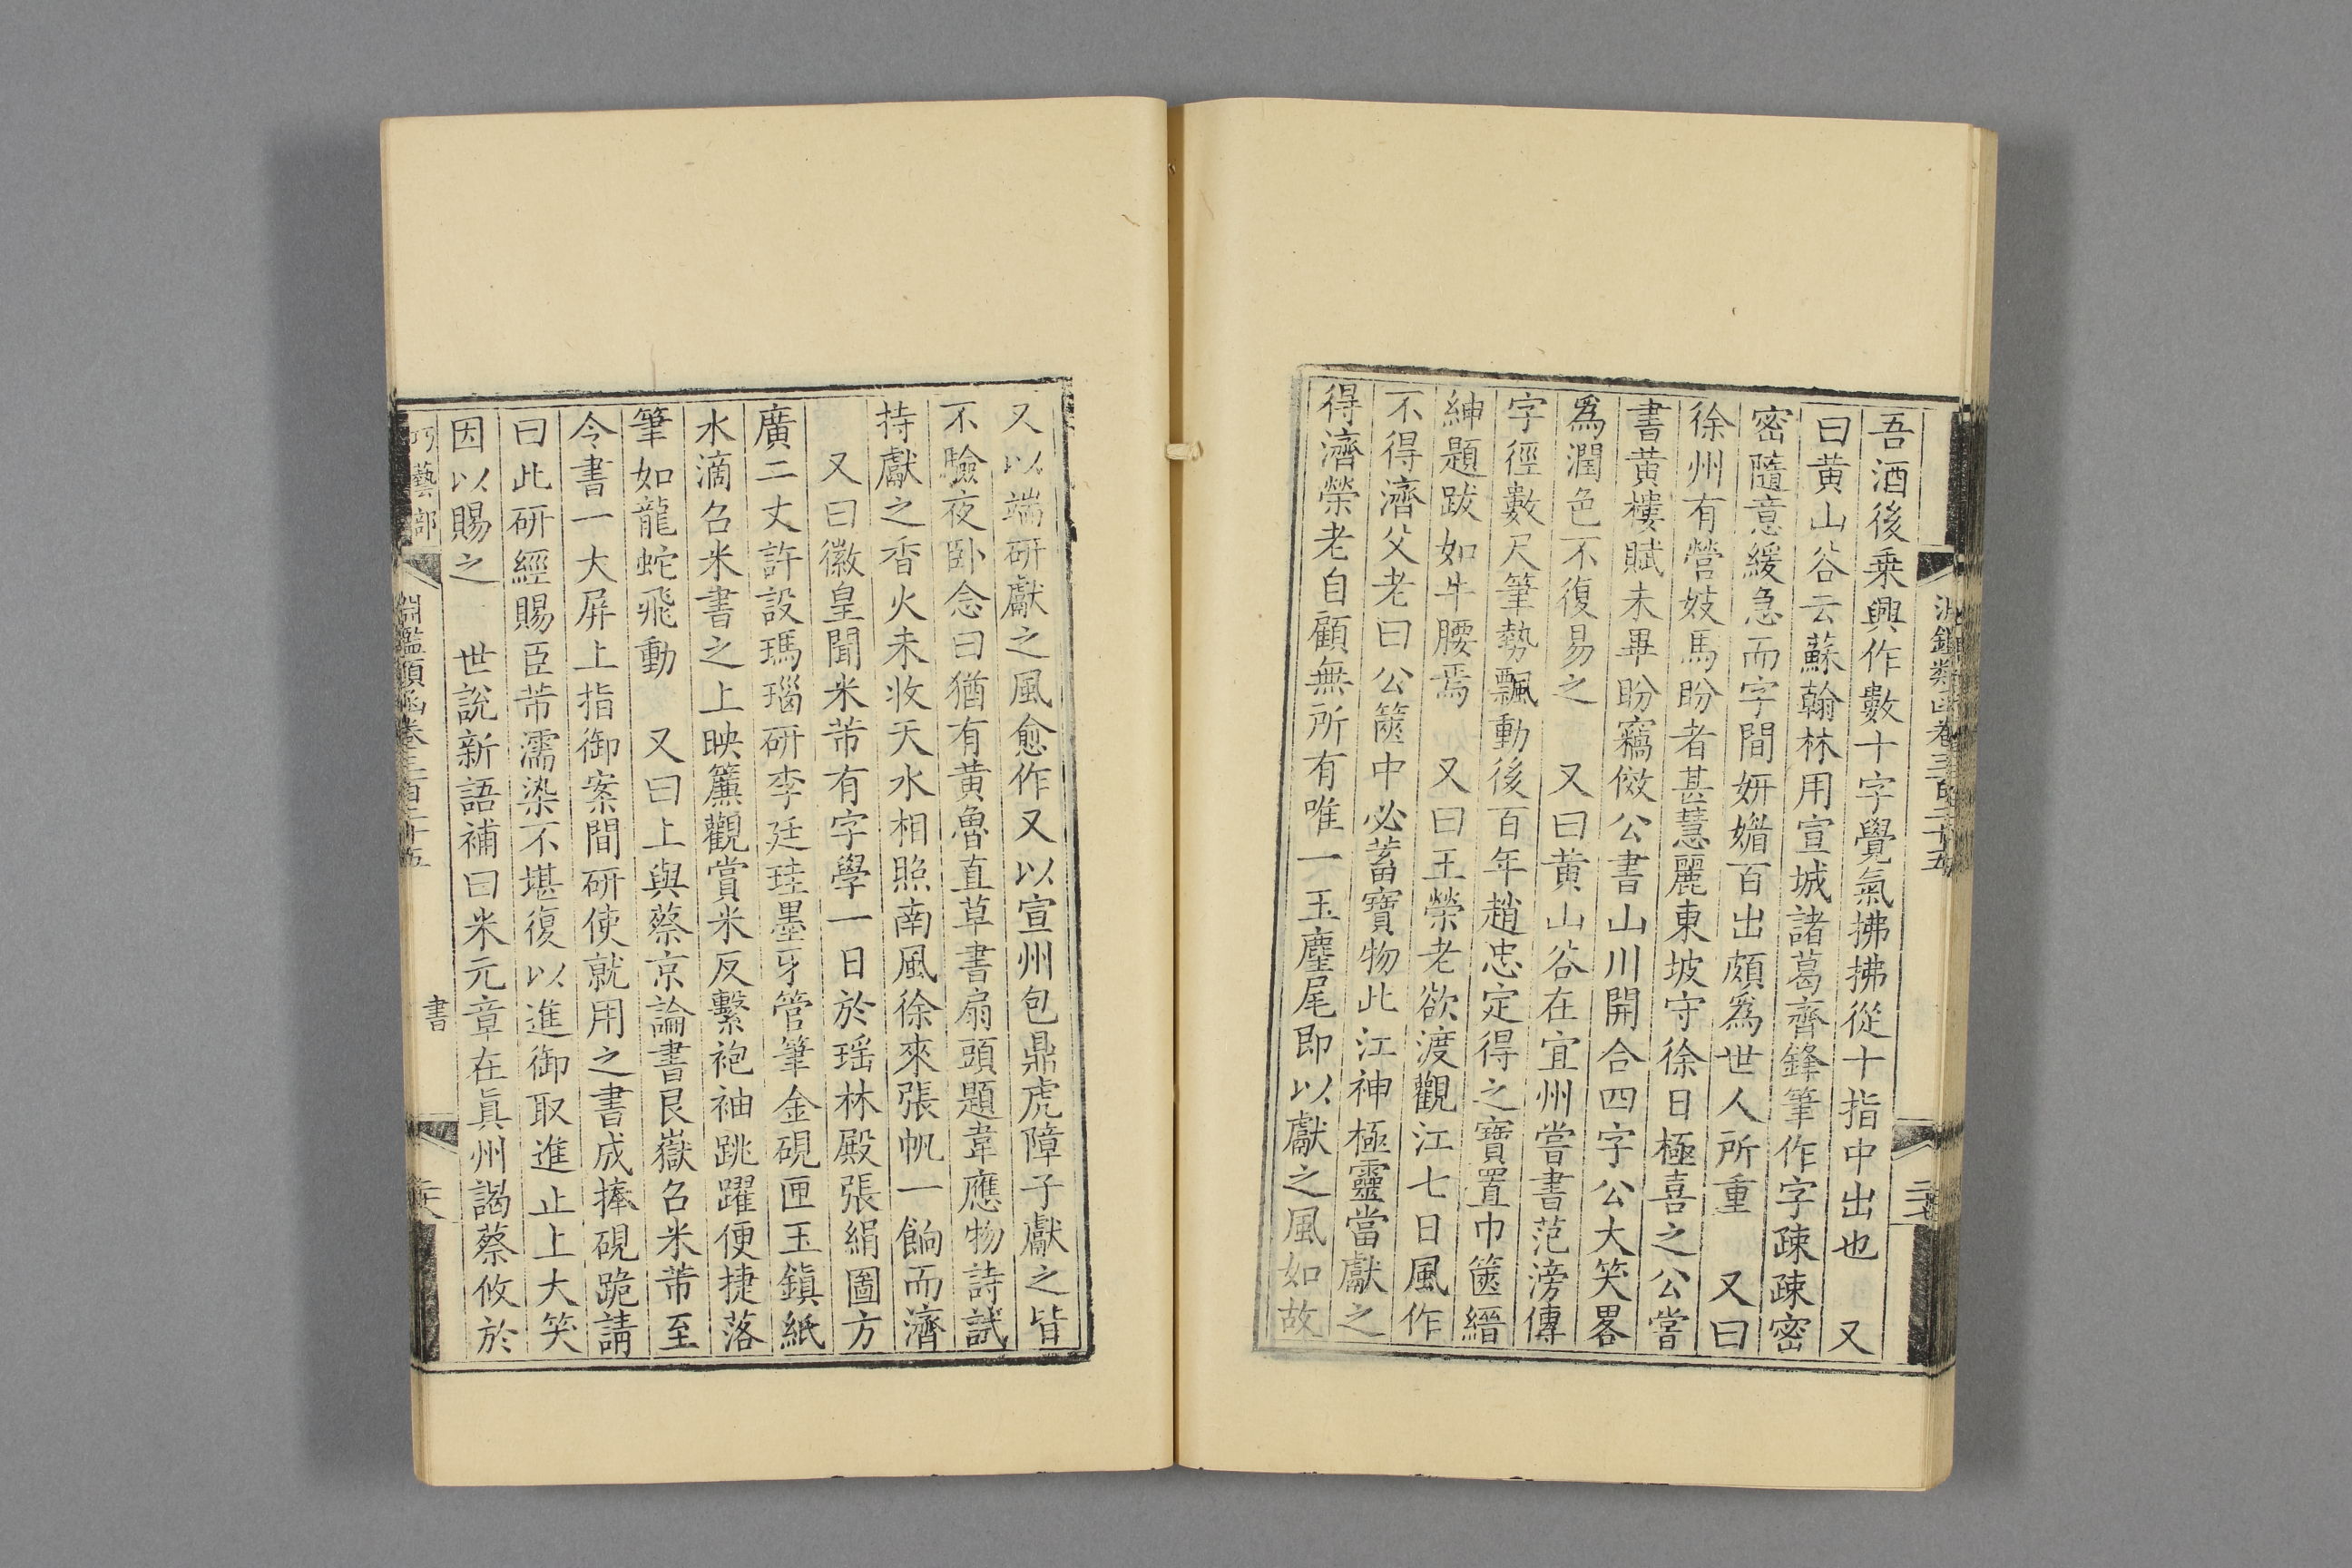 吾酒後乗興作數十字覺氣拂拂從十指中出也　又
曰黄山谷云蘇翰林用宣城諸葛齊鋒筆作字疎疎密
密隨意緩急而字間妍媚百出頗爲世人所重　又曰
徐州有營妓馬盼者甚慧麗東坡守徐日極喜之公嘗
書黄樓賦未畢盼竊倣公書山川開合四字公大笑畧
爲潤色不復易之　又曰黄山谷在宜州嘗書范滂傳
字徑數尺筆勢飄動後百年趙忠定得之寶置巾篋縉
紳題跋如牛腰焉　又曰王榮老欲渡觀江七日風作
不得濟父老曰公篋中必蓄寶物此江神極靈當獻之
得濟榮老自顧無所有唯一玉麈尾即以獻之風如故
又以端研獻之風愈作又以宣州包鼎虎障子獻之皆
不驗夜卧念曰猶有黄魯直草書扇頭題韋應物詩試
持獻之香火未收天水相照南風徐來張帆一餉而濟
又曰徽皇聞米芾有字學一日於瑶林殿張絹圖方
廣二丈許設瑪瑙研李廷珪墨牙管筆金硯匣玉鎮紙
水滴召米書之上映簾觀賞米反繫袍袖跳躍便捷落
筆如龍蛇飛動　又曰上與蔡京論書艮嶽召米芾至
令書一大屏上指御案間研使就用之書成捧硯跪請
曰此研經賜臣芾濡染不堪復以進御取進止上大笑
因以賜之　世說新語補曰米元章在眞州謁蔡攸於
巧藝部
淵鑑類函卷三百二十五
書